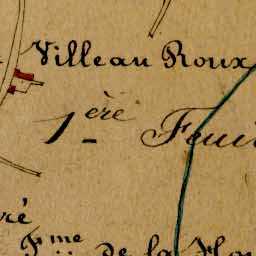 Ville au Roux
1ère Feui
ré
Fme de la Ho